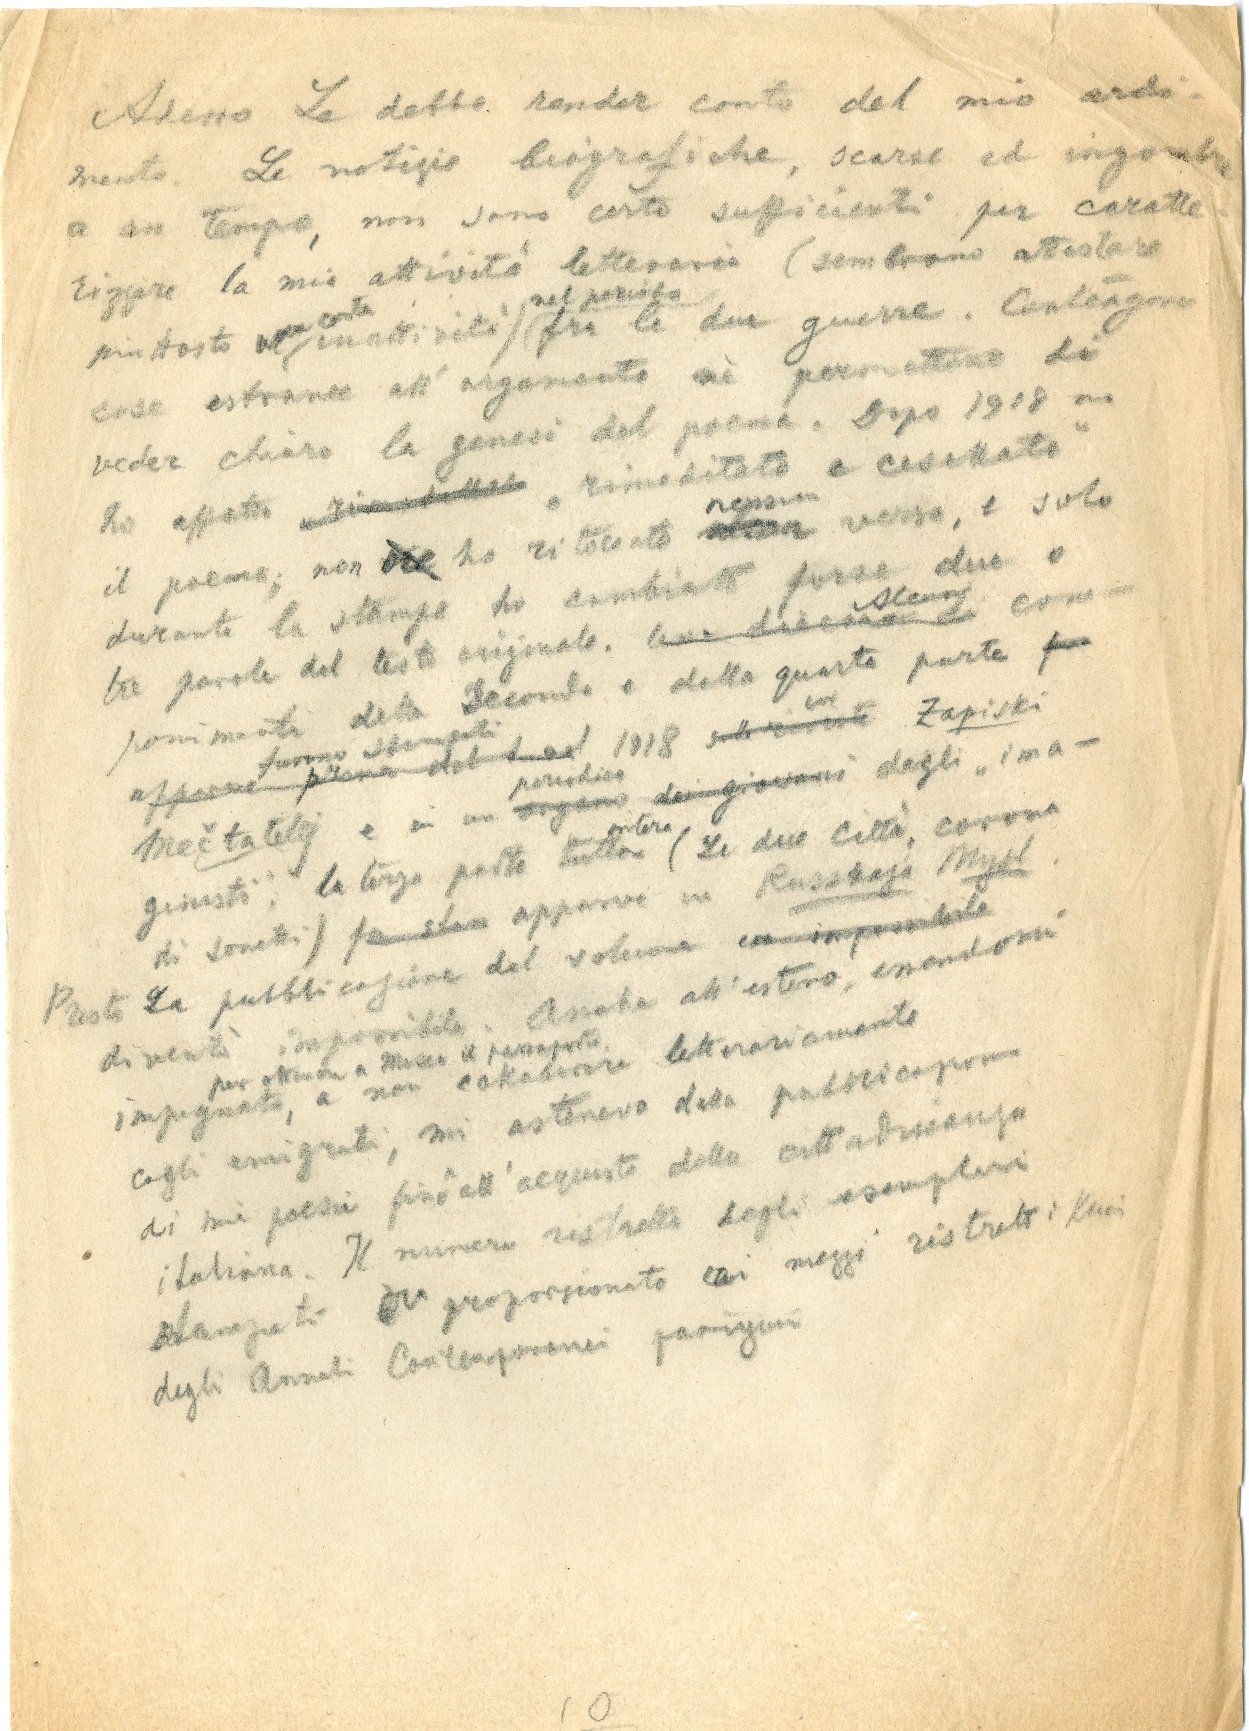 Adesso Le debbo render conto del mio ardi-
mento. Le notizie biografiche, scarse ed ingombre
a un tempo, non sono certo sufficienti per caratte-
rizzare la mia attività letteraria (sembrano attestare
una certa nel periodo
piuttosto inattività) fra le due guerre. Contengono
cose estranee all'argomento nè permettono di
veder chiaro la genesi del poema. Dopo 1918 non
ho affatto „rimeditato e cesellato“
nessun
il poema; non ho ritoccato verso, e solo
durante la stampa ho cambiato forse due o
Alcuni
tre parole del testo originale. Una diecina di com-
ponimenti della Seconda e della quarta parte
furono stampati in
apparve prima del 1918 Zapiski
periodico
Mečtatelej e in un organo dei giovani degli „ima-
intera
ginisti“; la terza parte tutta (Le due Città, corona
di sonetti) apparve in Russkaja Mysl.
Presto La pubblicazione del volume impossibile
diventò impossibile. Anche all'estero, essendomi
per ottenere a Mosca il passaporto
impegnato, a non collaborare letterariamente
cogli emigrati, mi astenevo dalla pubblicazione
di mie poesie fino all'acquisto della cittadinanza
italiana. Il numero ristretto degli esemplari
stampati proporzionato ai mezzi ristretti
degli Annali Contemporanei parigini
10